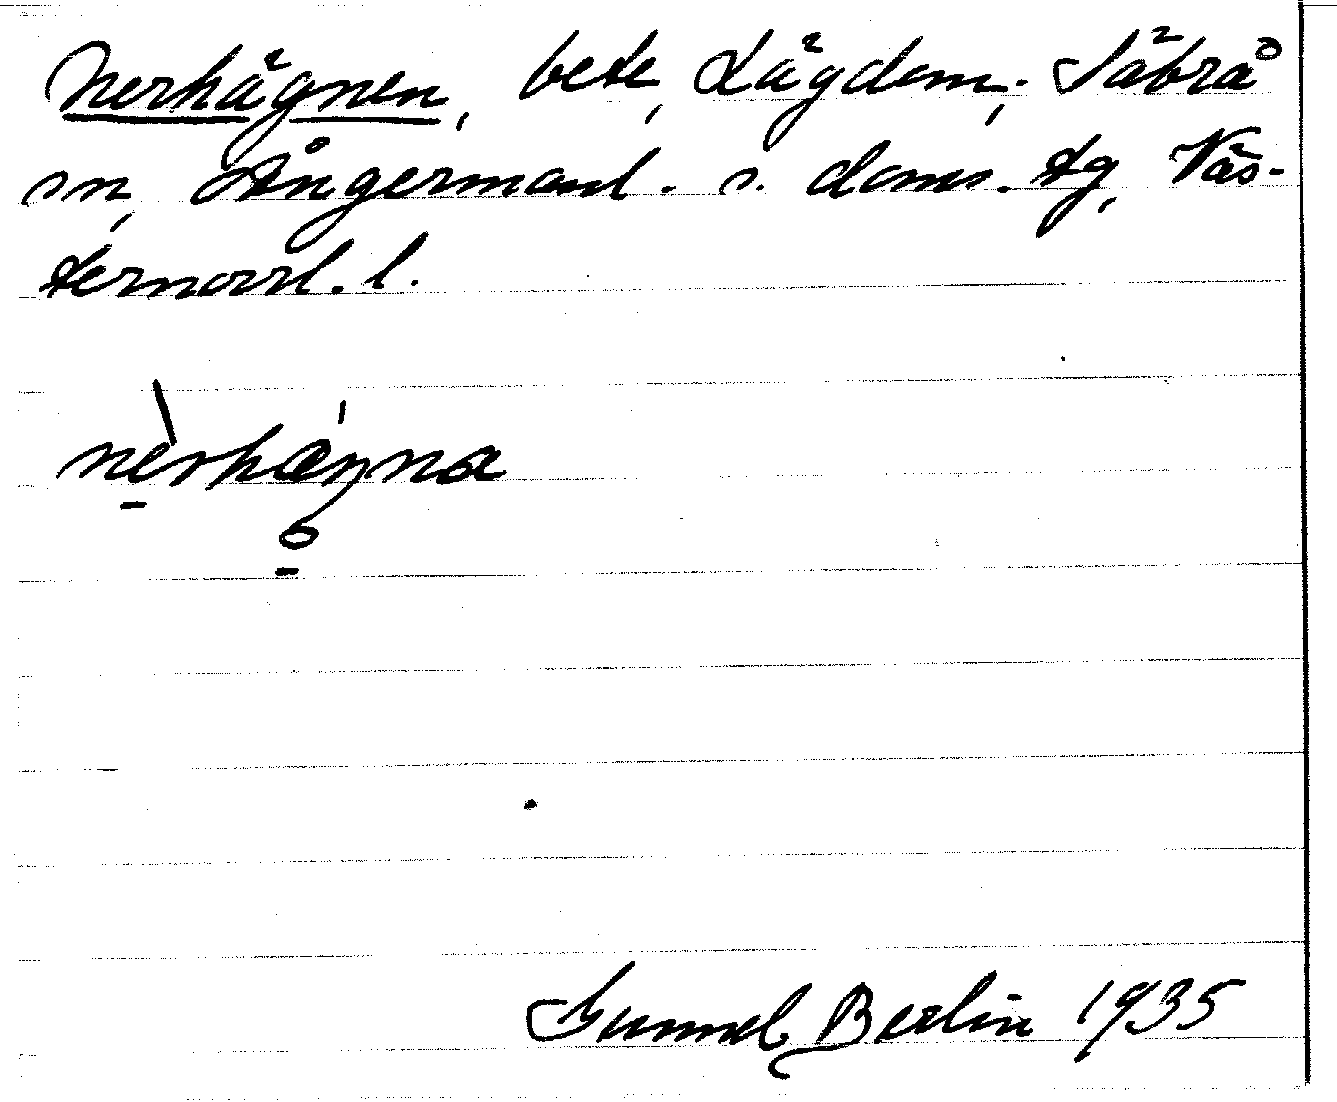 Nerhägnen, bete, Lägdom, Säbrå
sn, Ångermanl. s. doms. tg, Väs-
ternorrl. l.
nerhæŋna
Gunnel Berlin 1935